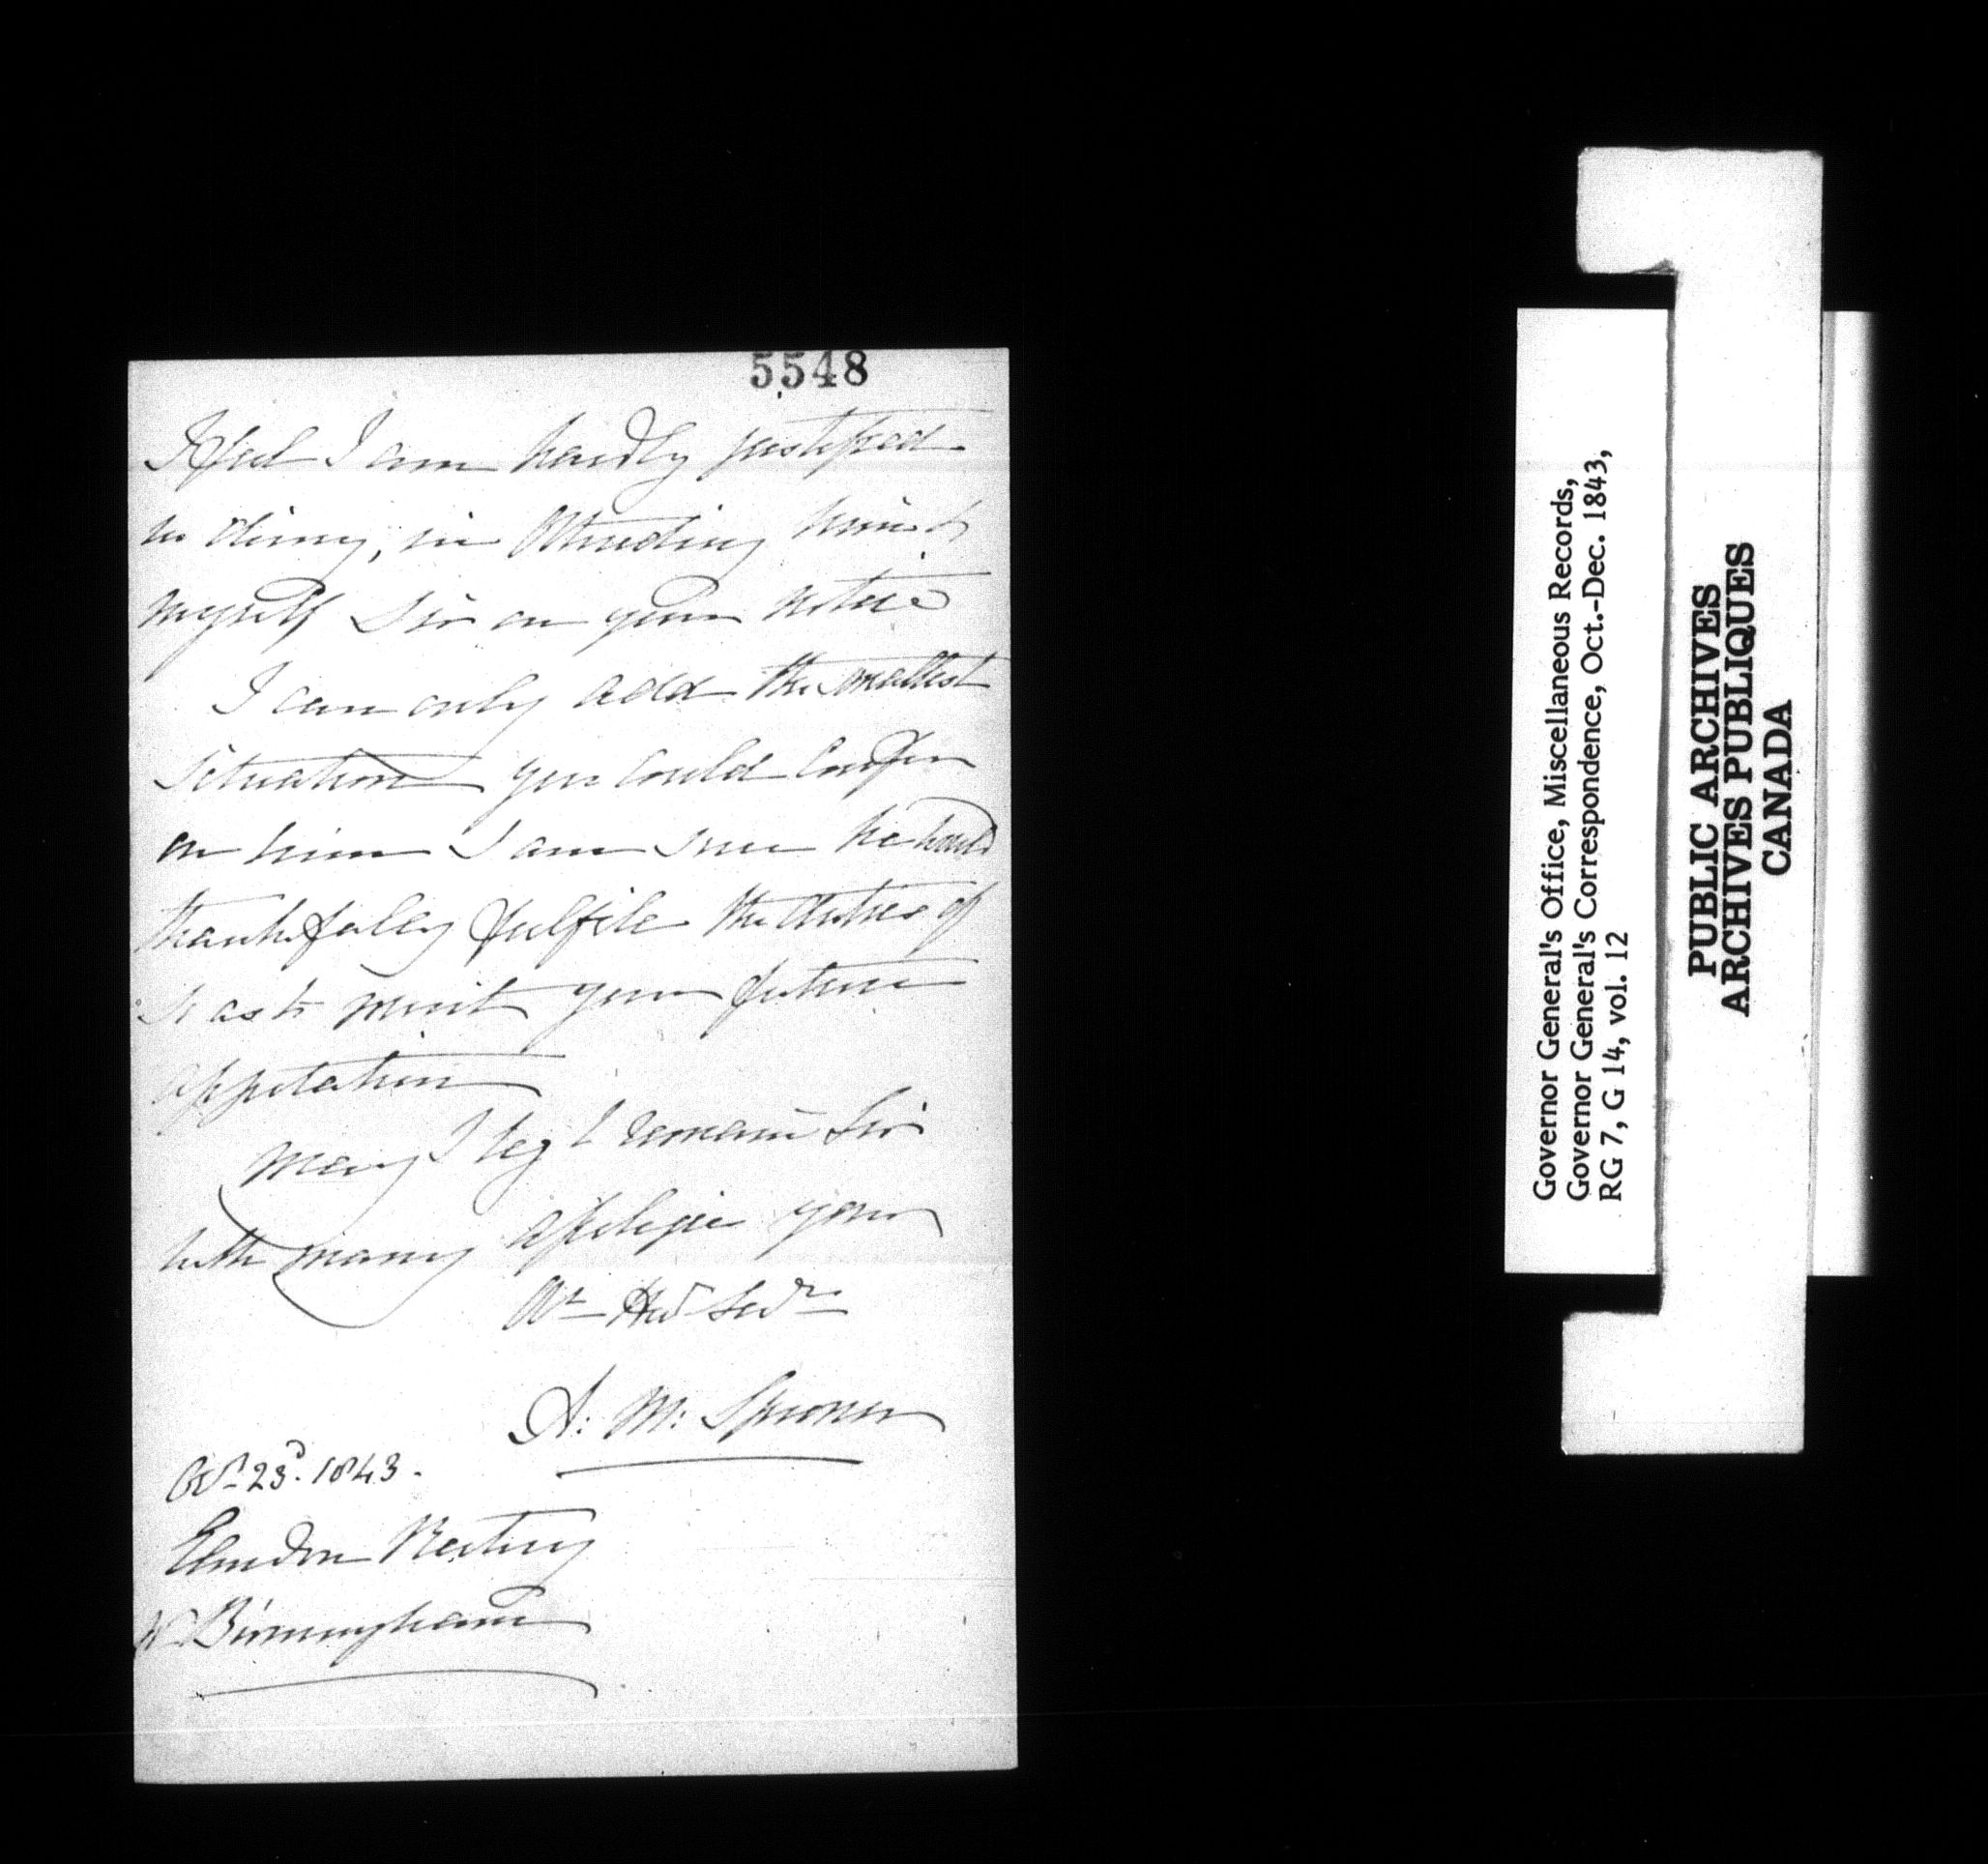 5548
I feel I am hardly justified
in doing, in Obtruding him &
myself Sir on your notice
I can only add the smallest
situation you could Confer
on him I am sure he would
thankfully fulfile the duties of
so as to merit your future
May I beg to remain Sir
with many apologie your
Obt Hbl Servt
A: M: Spooner
Octr 23d. 1843.
Elmdon Rectory
Nr Birmingham
Governor General's Office, Miscellaneous Records,
Governor General's Correspondence, Oct.-Dec. 1843,
RG 7, G 14, vol. 12
PUBLIC ARCHIVES
ARCHIVES PUBLIQUES
CANADA